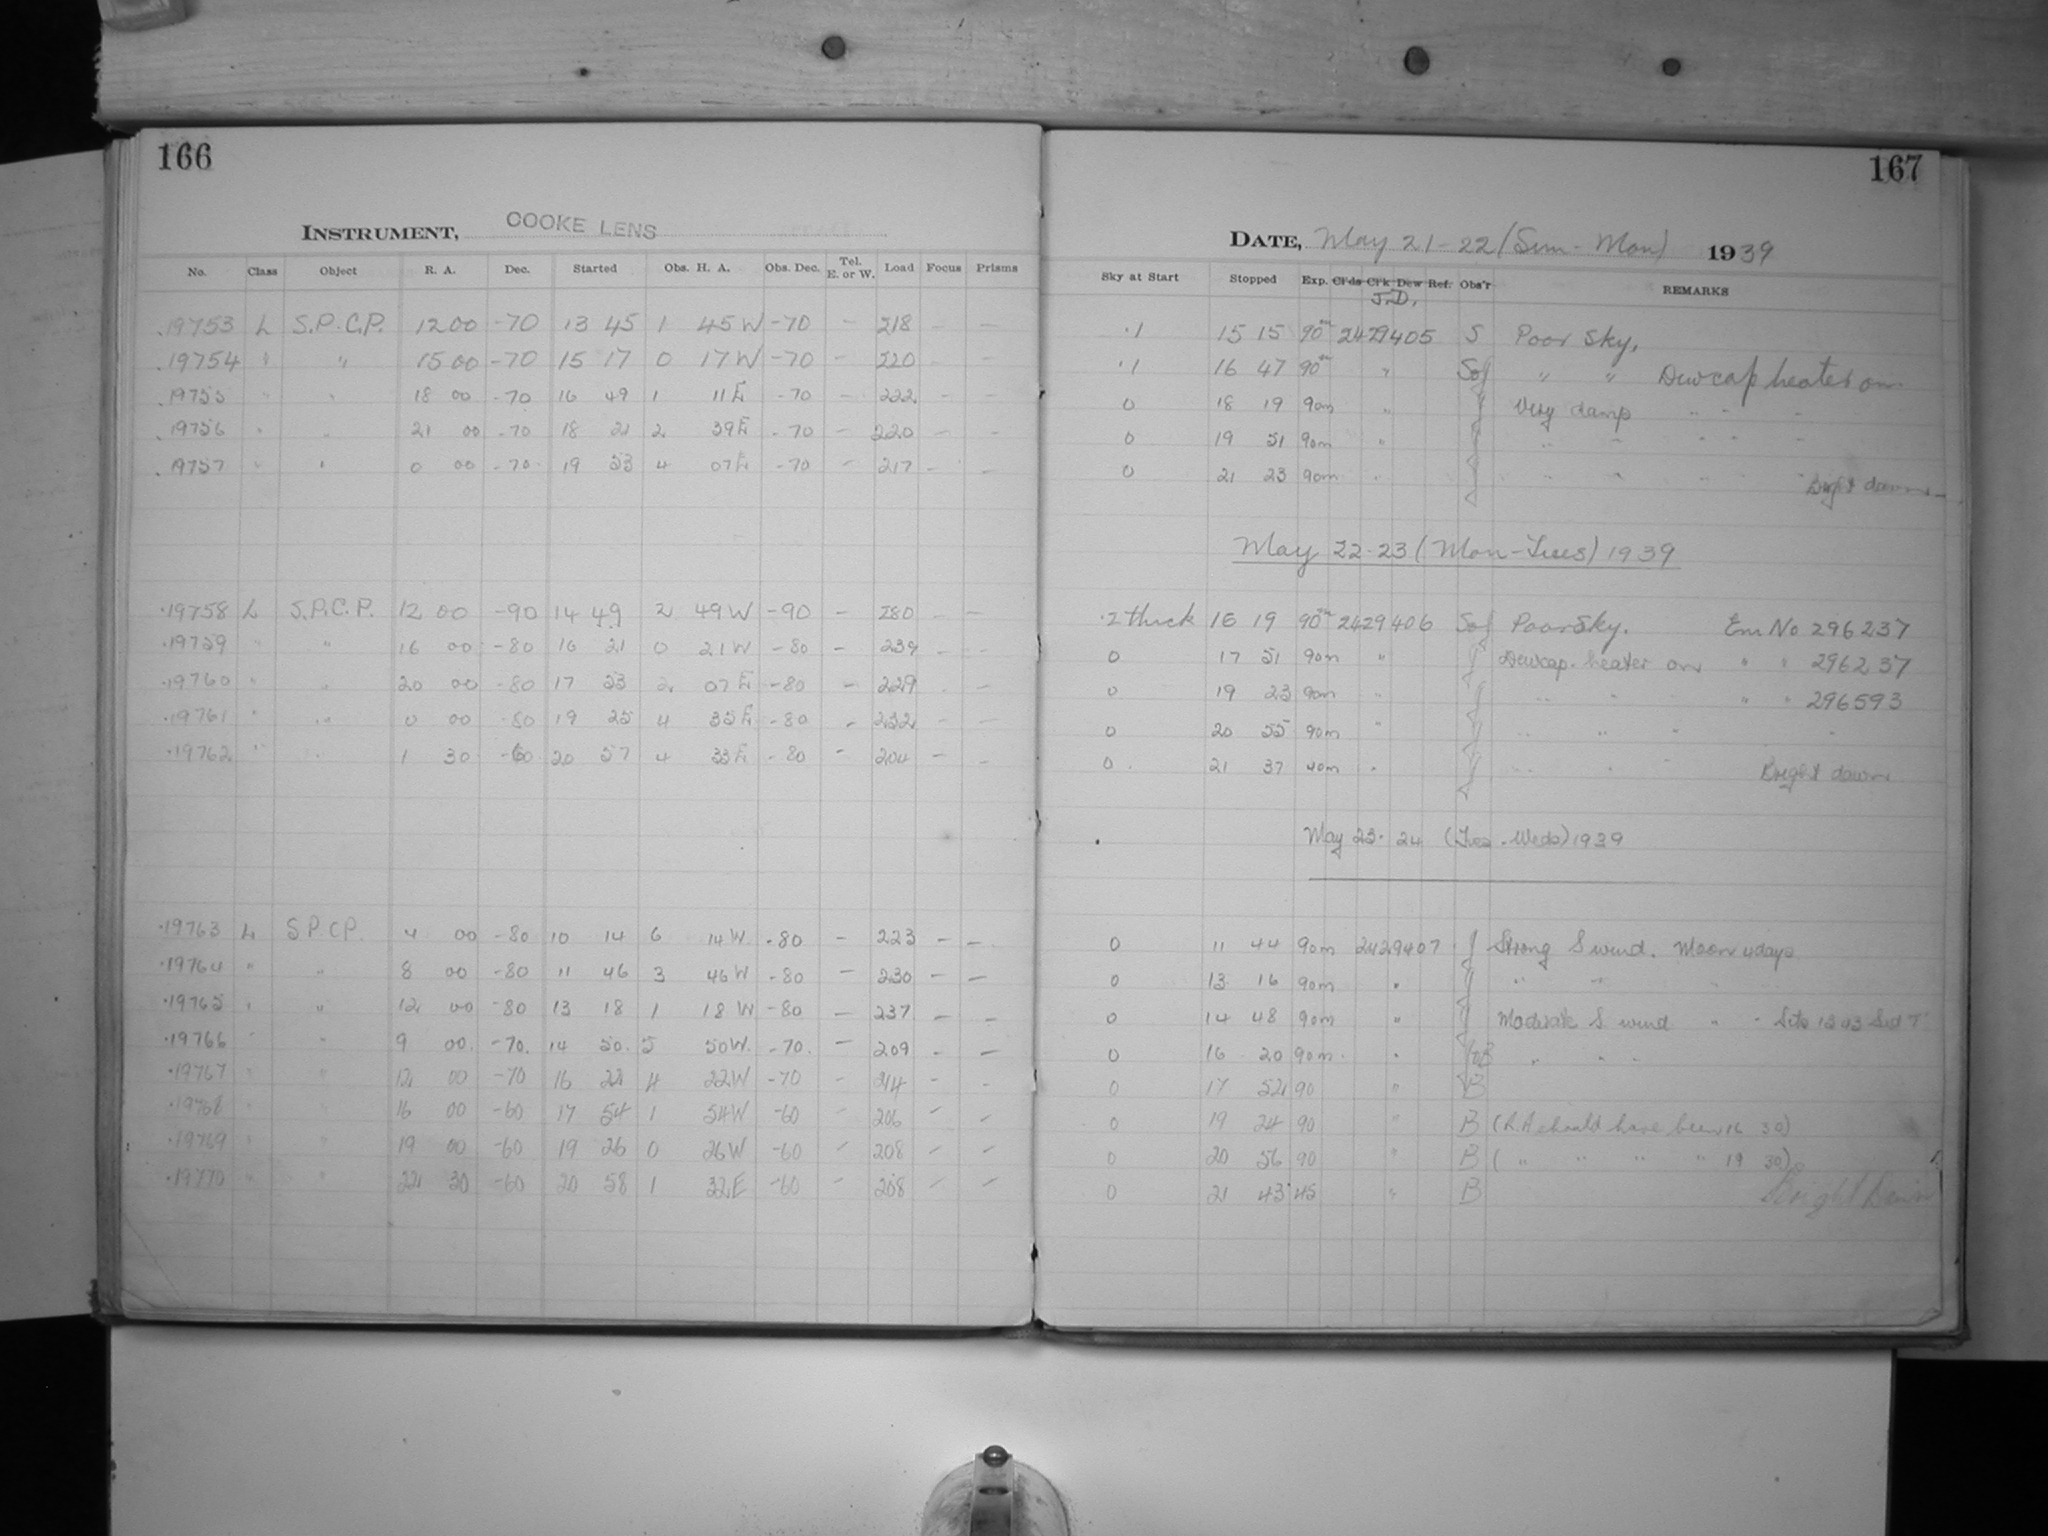 166
INSTRUMENT, COOKE LENS
No. Class Object R. A. Dec. Started Obs. H. A. Obs. Dec. Tel. E. or W. Load Focus Prisms
.19753 L S.P.C.P. 12 00 -70 13 45 1 45 W -70 - 218 - -
.19754 " " 15 00 -70 15 17 0 17 W -70 - 220 - -
.19755 " " 18 00 -70 16 49 1 11 E -70 - 222 - -
.19756 " " 21 00 -70 18 21 2 39 E -70 - 220 - -
.19757 " " 0 00 -70 19 53 4 07 E -70 - 217 - -
.19758 L S.P.C.P. 12 00 -90 14 49 2 49 W -90 - 280 - -
.19759 " " 16 00 -80 16 21 0 21 W -80 - 239 - -
.19760 " " 20 00 -80 17 53 2 07 E -80 - 229 - -
.19761 " " 0 00 -80 19 25 4 35 E -80 - 232 - -
.19762 " " 1 30 -60 20 57 4 33 E -80 - 204 - -
.19763 L S.P.C.P. 4 00 -80 10 14 6 14 W -80 - 223 - -
.19764 " " 8 00 -80 11 46 3 46 W -80 - 230 - -
.19765 " " 12 00 -80 13 18 1 18 W -80 - 237 - -
.19766 " " 9 00 -70 14 50 5 50 W -70 - 209 - -
.19767 " " 12 00 -70 16 22 4 22 W -70 - 214 - -
.19768 " " 16 00 -60 17 54 1 54 W -60 - 206 - -
.19769 " " 19 00 -60 19 26 0 26 W -60 - 208 - -
.19770 " " 22 30 -60 20 58 1 32 E -60 - 208 - -
167
DATE, May 21-22 (Sun-Mon) 1939
Sky at Start Stopped Exp. Cl'ds Cl'k Dew Ref. Obs'r REMARKS
J.D.
.1 15 15 90m 2429405 S Poor Sky,
.1 16 47 90m " S&J " " Dewcap heater on
0 18 19 90m " J Very damp " " "
0 19 51 90m " " " " " "
0 21 23 90m " " " " " " Bright dawn
May 22-23 (Mon-Tues) 1939
.2 thick 16 19 90m 2429406 S&J Poor Sky. Em No 296237
0 17 51 90m " J Dewcap heater on " " 296237
0 19 23 90m " J " " " " " 296593
0 20 55 90m " " " " "
0 21 37 40m " " " " Bright dawn
May 23-24 (Tues-Weds) 1939
0 11 44 90m 2429407 J Strong S wind. Moon 4 days
0 13 16 90m " J " "
0 14 48 90m " J Moderate S wind " " Sets 13 03 Sid T
0 16 20 90m " J&B " " "
0 17 52 90 " B
0 19 24 90 " B (R.A should have been 16 30)
0 20 56 90 " B ( " " " " 19 30)
0 21 43 45 " B Bright Dawn